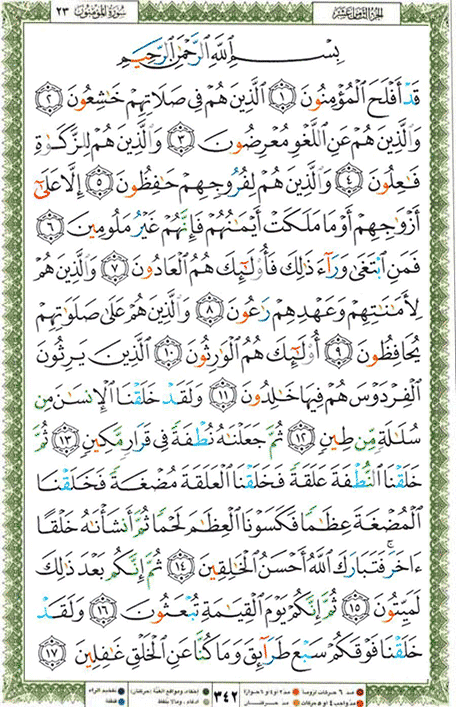 الجزء الثامن عشر سورة المؤمنون ٢٣
بِسْمِ اللَّهِ الرَّحْمَٰنِ الرَّحِيمِ
قَدْ أَفْلَحَ الْمُؤْمِنُونَ ١ الَّذِينَ هُمْ فِي صَلَاتِهِمْ خَاشِعُونَ ٢
وَالَّذِينَ هُمْ عَنِ اللَّغْوِ مُعْرِضُونَ ٣ وَالَّذِينَ هُمْ لِلزَّكَوٰةِ
فَاعِلُونَ ٤ وَالَّذِينَ هُمْ لِفُرُوجِهِمْ حَافِظُونَ ٥ إِلَّا عَلَىٰٓ
أَزْوَاجِهِمْ أَوْ مَا مَلَكَتْ أَيْمَانُهُمْ فَإِنَّهُمْ غَيْرُ مَلُومِينَ ٦
فَمَنِ ابْتَغَىٰ وَرَآءَ ذَٰلِكَ فَأُو۟لَٰٓئِكَ هُمُ الْعَادُونَ ٧ وَالَّذِينَ هُمْ
لِأَمَانَاتِهِمْ وَعَهْدِهِمْ رَاعُونَ ٨ وَالَّذِينَ هُمْ عَلَىٰ صَلَوَاتِهِمْ
يُحَافِظُونَ ٩ أُو۟لَٰٓئِكَ هُمُ الْوَارِثُونَ ١٠ الَّذِينَ يَرِثُونَ
الْفِرْدَوْسَ هُمْ فِيهَا خَالِدُونَ ١١ وَلَقَدْ خَلَقْنَا الْإِنسَانَ مِن
سُلَالَةٍ مِّن طِينٍ ١٢ ثُمَّ جَعَلْنَاهُ نُطْفَةً فِي قَرَارٍ مَّكِينٍ ١٣ ثُمَّ
خَلَقْنَا النُّطْفَةَ عَلَقَةً فَخَلَقْنَا الْعَلَقَةَ مُضْغَةً فَخَلَقْنَا
الْمُضْغَةَ عِظَامًا فَكَسَوْنَا الْعِظَامَ لَحْمًا ثُمَّ أَنشَأْنَاهُ خَلْقًا
ءَاخَرَ ۚ فَتَبَارَكَ اللَّهُ أَحْسَنُ الْخَالِقِينَ ١٤ ثُمَّ إِنَّكُم بَعْدَ ذَٰلِكَ
لَمَيِّتُونَ ١٥ ثُمَّ إِنَّكُمْ يَوْمَ الْقِيَامَةِ تُبْعَثُونَ ١٦ وَلَقَدْ
خَلَقْنَا فَوْقَكُمْ سَبْعَ طَرَآئِقَ وَمَا كُنَّا عَنِ الْخَلْقِ غَافِلِينَ ١٧
٣٤٢